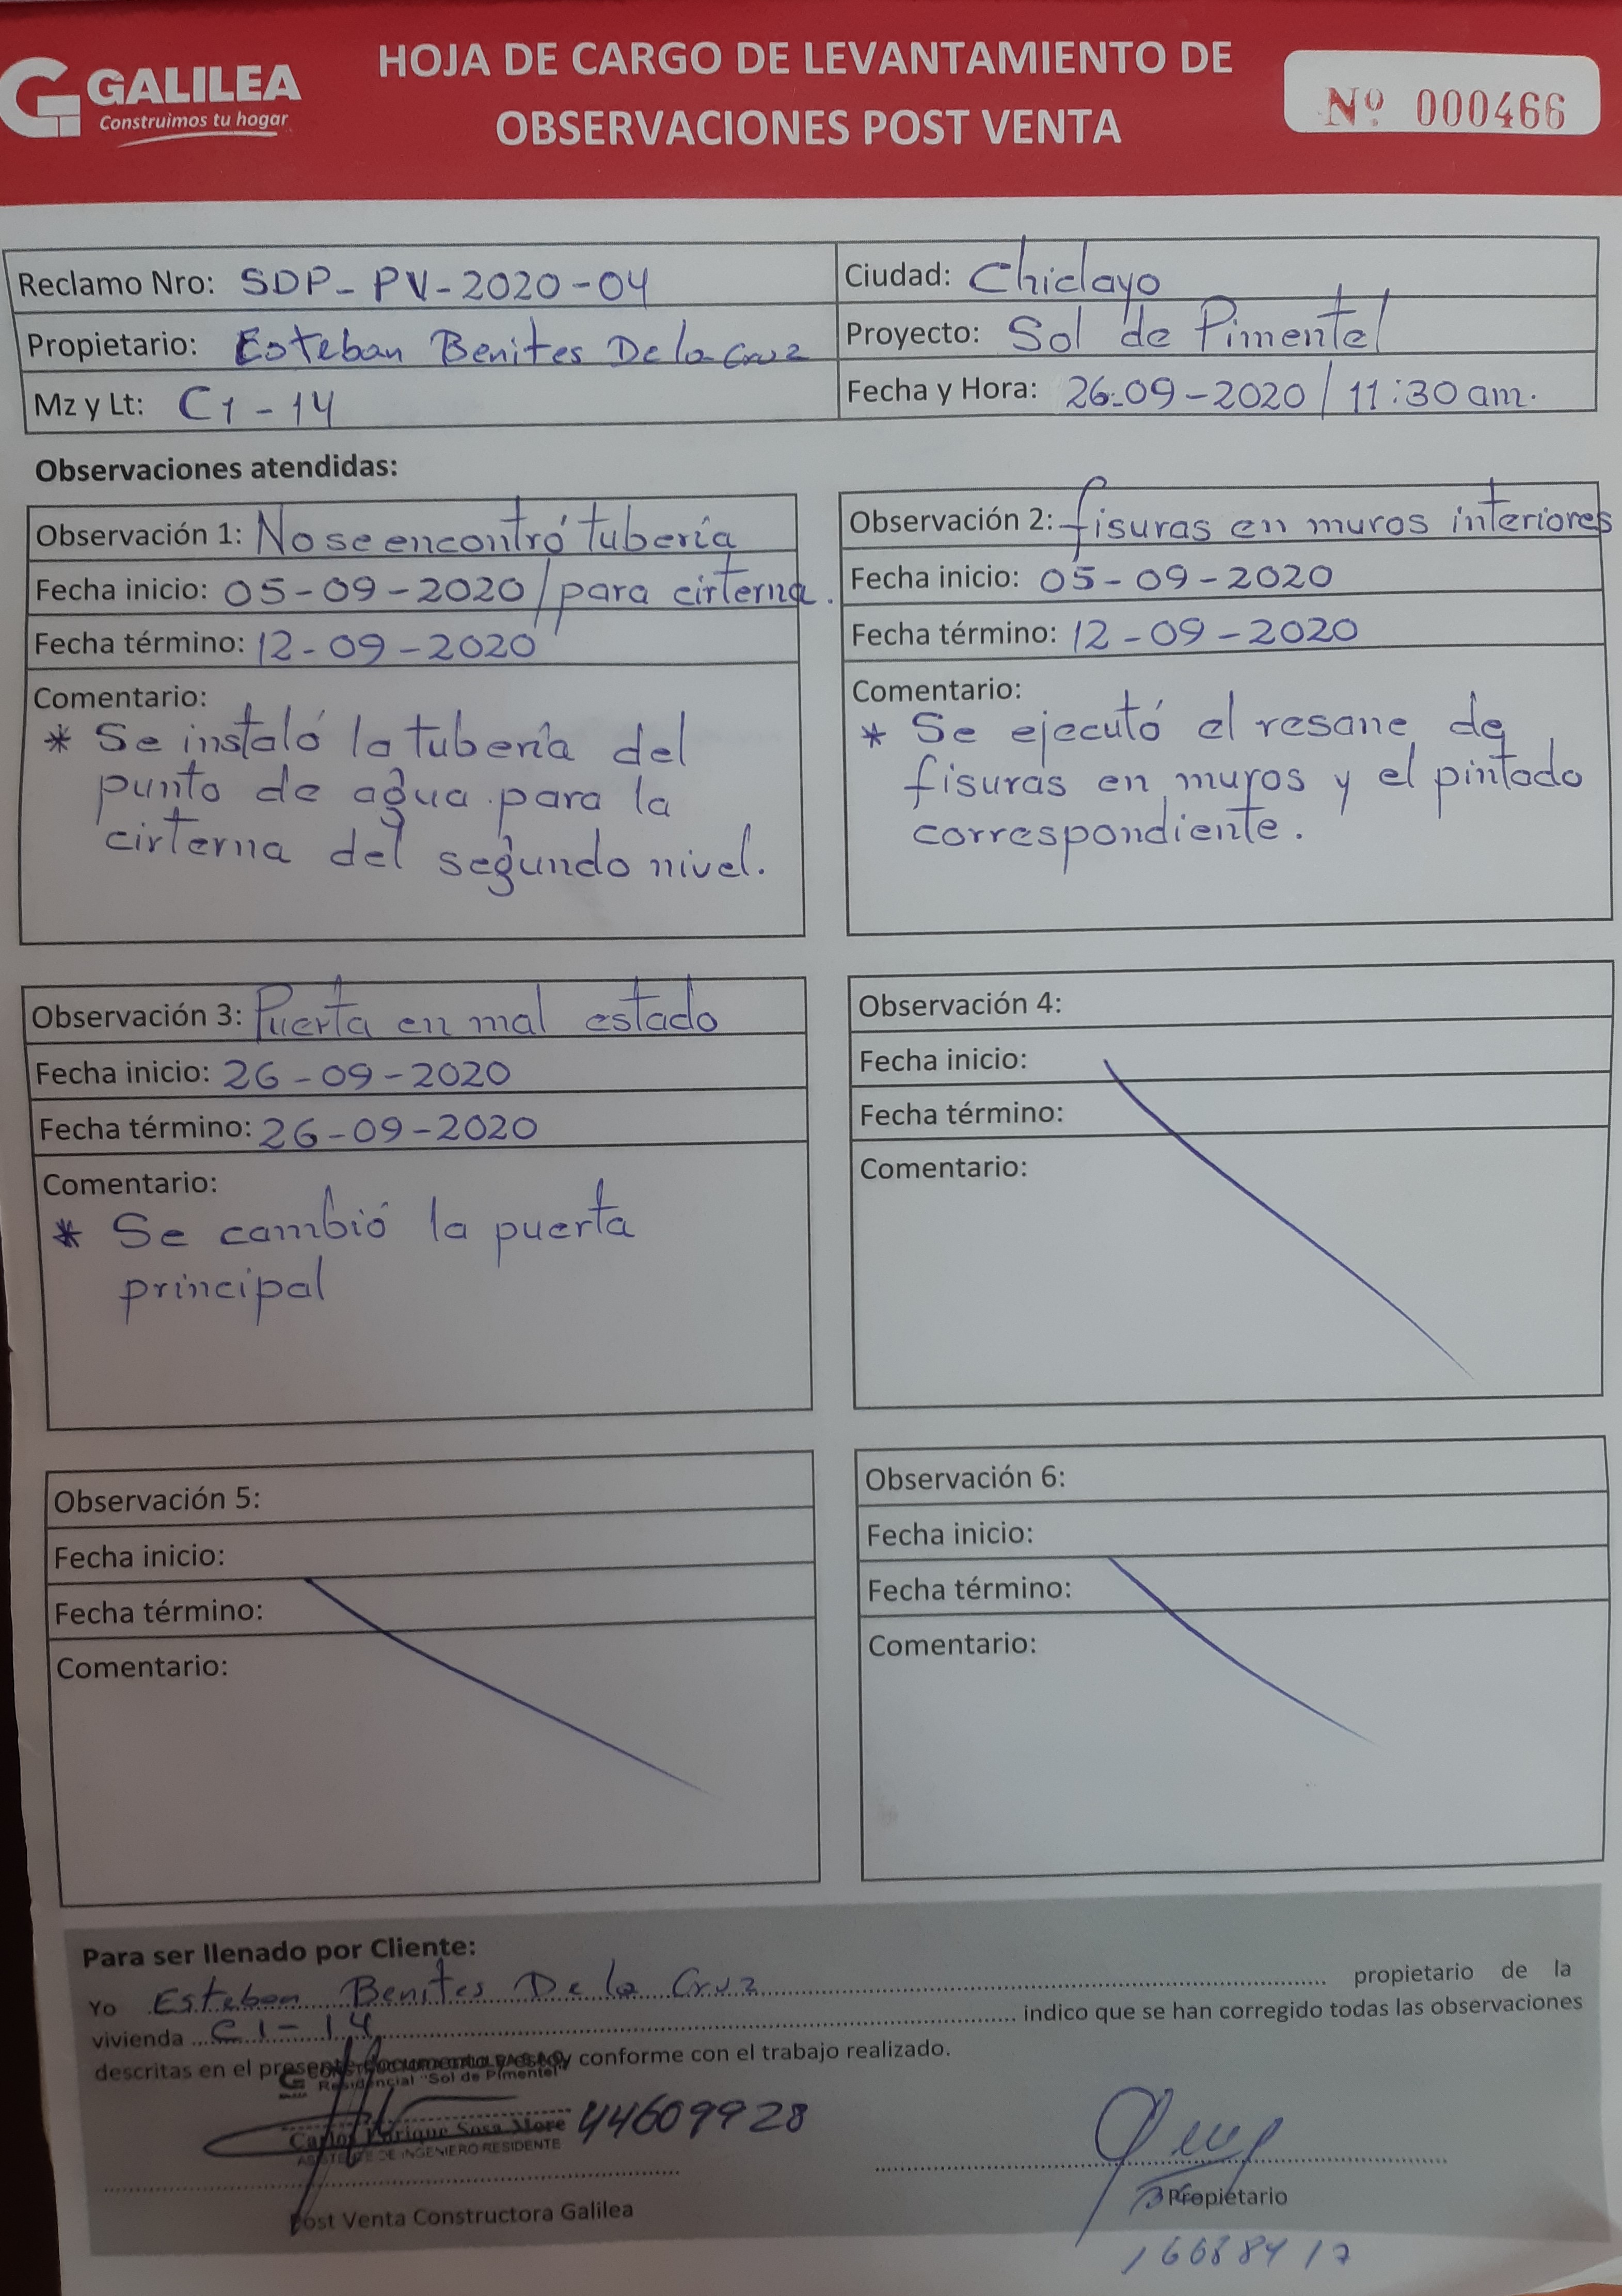 GALILEA
Construimos tu hogar
HOJA DE CARGO DE LEVANTAMIENTO DE
OBSERVACIONES POST VENTA
Nº 000466
Reclamo Nro: SDP-PV-2020-04
Ciudad: Chiclayo
Propietario: Esteban Benites De la Cruz
Proyecto: Sol de Pimentel
Mz y Lt: C1-14
Fecha y Hora: 26-09-2020 / 11:30 am.
Observaciones atendidas:
Observación 1: No se encontró tubería
Fecha inicio: 05-09-2020 / para cirterna.
Fecha término: 12-09-2020
Comentario:
* Se instaló la tubería del
punto de agua para la
cirterna del segundo nivel.
Observación 2: fisuras en muros interiores
Fecha inicio: 05-09-2020
Fecha término: 12-09-2020
Comentario:
* Se ejecutó el resane de
fisuras en muros y el pintado
correspondiente.
Observación 3: Puerta en mal estado
Fecha inicio: 26-09-2020
Fecha término: 26-09-2020
Comentario:
* Se cambió la puerta
principal
Observación 4:
Fecha inicio:
Fecha término:
Comentario:
Observación 5:
Fecha inicio:
Fecha término:
Comentario:
Observación 6:
Fecha inicio:
Fecha término:
Comentario:
Para ser llenado por Cliente:
Yo Esteban Benites De la Cruz propietario de la
vivienda C1-14 indico que se han corregido todas las observaciones
descritas en el presente documento y estoy conforme con el trabajo realizado.
Residencial "Sol de Pimentel"
Carlos Enrique Sosa More
ASISTENTE DE INGENIERO RESIDENTE
44609928
Post Venta Constructora Galilea
Propietario